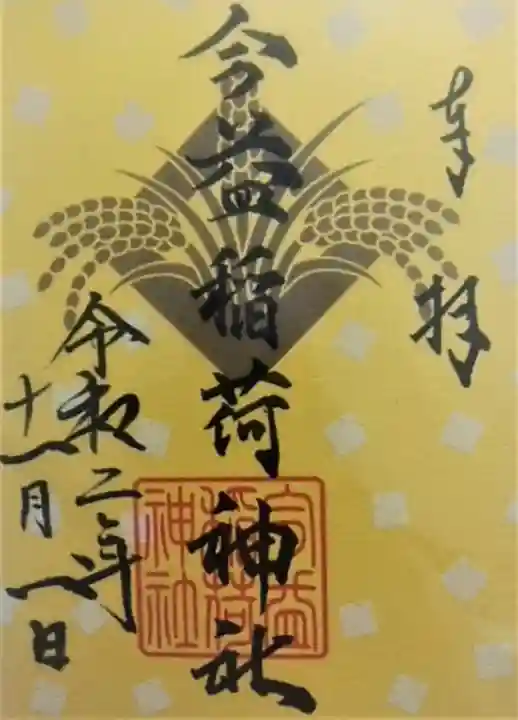 奉拝
合益稲荷神社
令和二年
十一月一日
合益
稲荷
神社